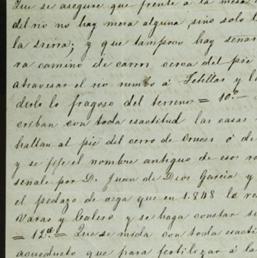 Que se asegure que frente á la mesa
del rio no hay mesa alguna sino solo l
la Sierra; y que tampoco hay señas
ra camino de carros cerca del pie
atravesar el rio rumbo á Fetillas y l
derlo lo fragoso del terreno = 10.ª
criban con toda exactitud las casas
hallan al pié del cerro de Cruces ó de
y se fije el nombre antiguo de ese ra
señale por D. Juan de Dios Garcia y
el pedazo de asga que en 1.848 le re
Varas y Calero y se haga constar se
= 12.ª = Que se mida con toda exacti
acueducto que para fertilizar á la